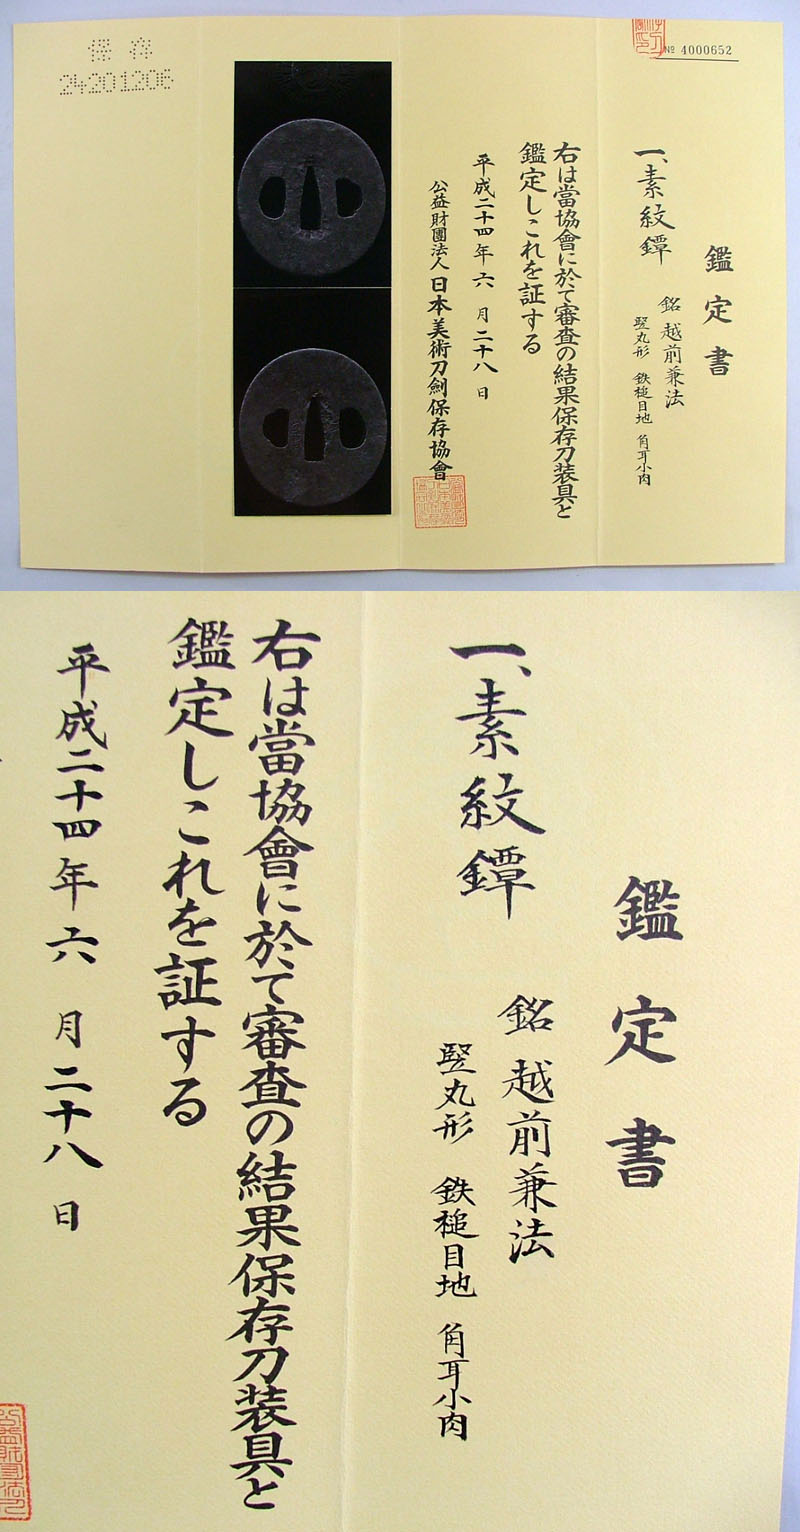 № 4000652
鑑定書
一、素紋鐔
銘 越前兼法
竪丸形 鉄槌目地 角耳小肉
右は當協會に於て審査の結果保存刀装具と
鑑定しこれを証する
平成二十四年六月二十八日
公益財團法人日本美術刀劍保存協會
保存
24201206
鑑定書
一、素紋鐔
銘 越前兼法
竪丸形 鉄槌目地 角耳小肉
右は當協會に於て審査の結果保存刀装具と
鑑定しこれを証する
平成二十四年六月二十八日